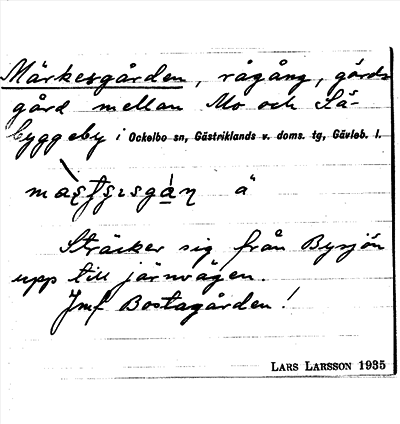 Märkesgården, rågång, gärds
gård mellan Mo och Så-
byggeby i Ockelbo sn, Gästriklands v. doms. tg, Gävleb. l.
Sträcker sig från Bysjön
upp till järnvägen.
Jmf Bostagården!
LARS LARSSON 1935